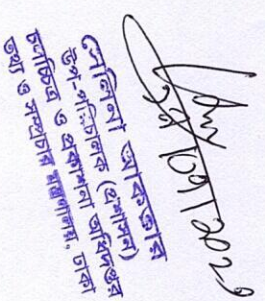 সেলিনা আক্তার
উপ-পরিচালক (প্রশাসন)
চলচ্চিত্র ও প্রকাশনা অধিদপ্তর
তথ্য ও সম্প্রচার মন্ত্রণালয়, ঢাকা